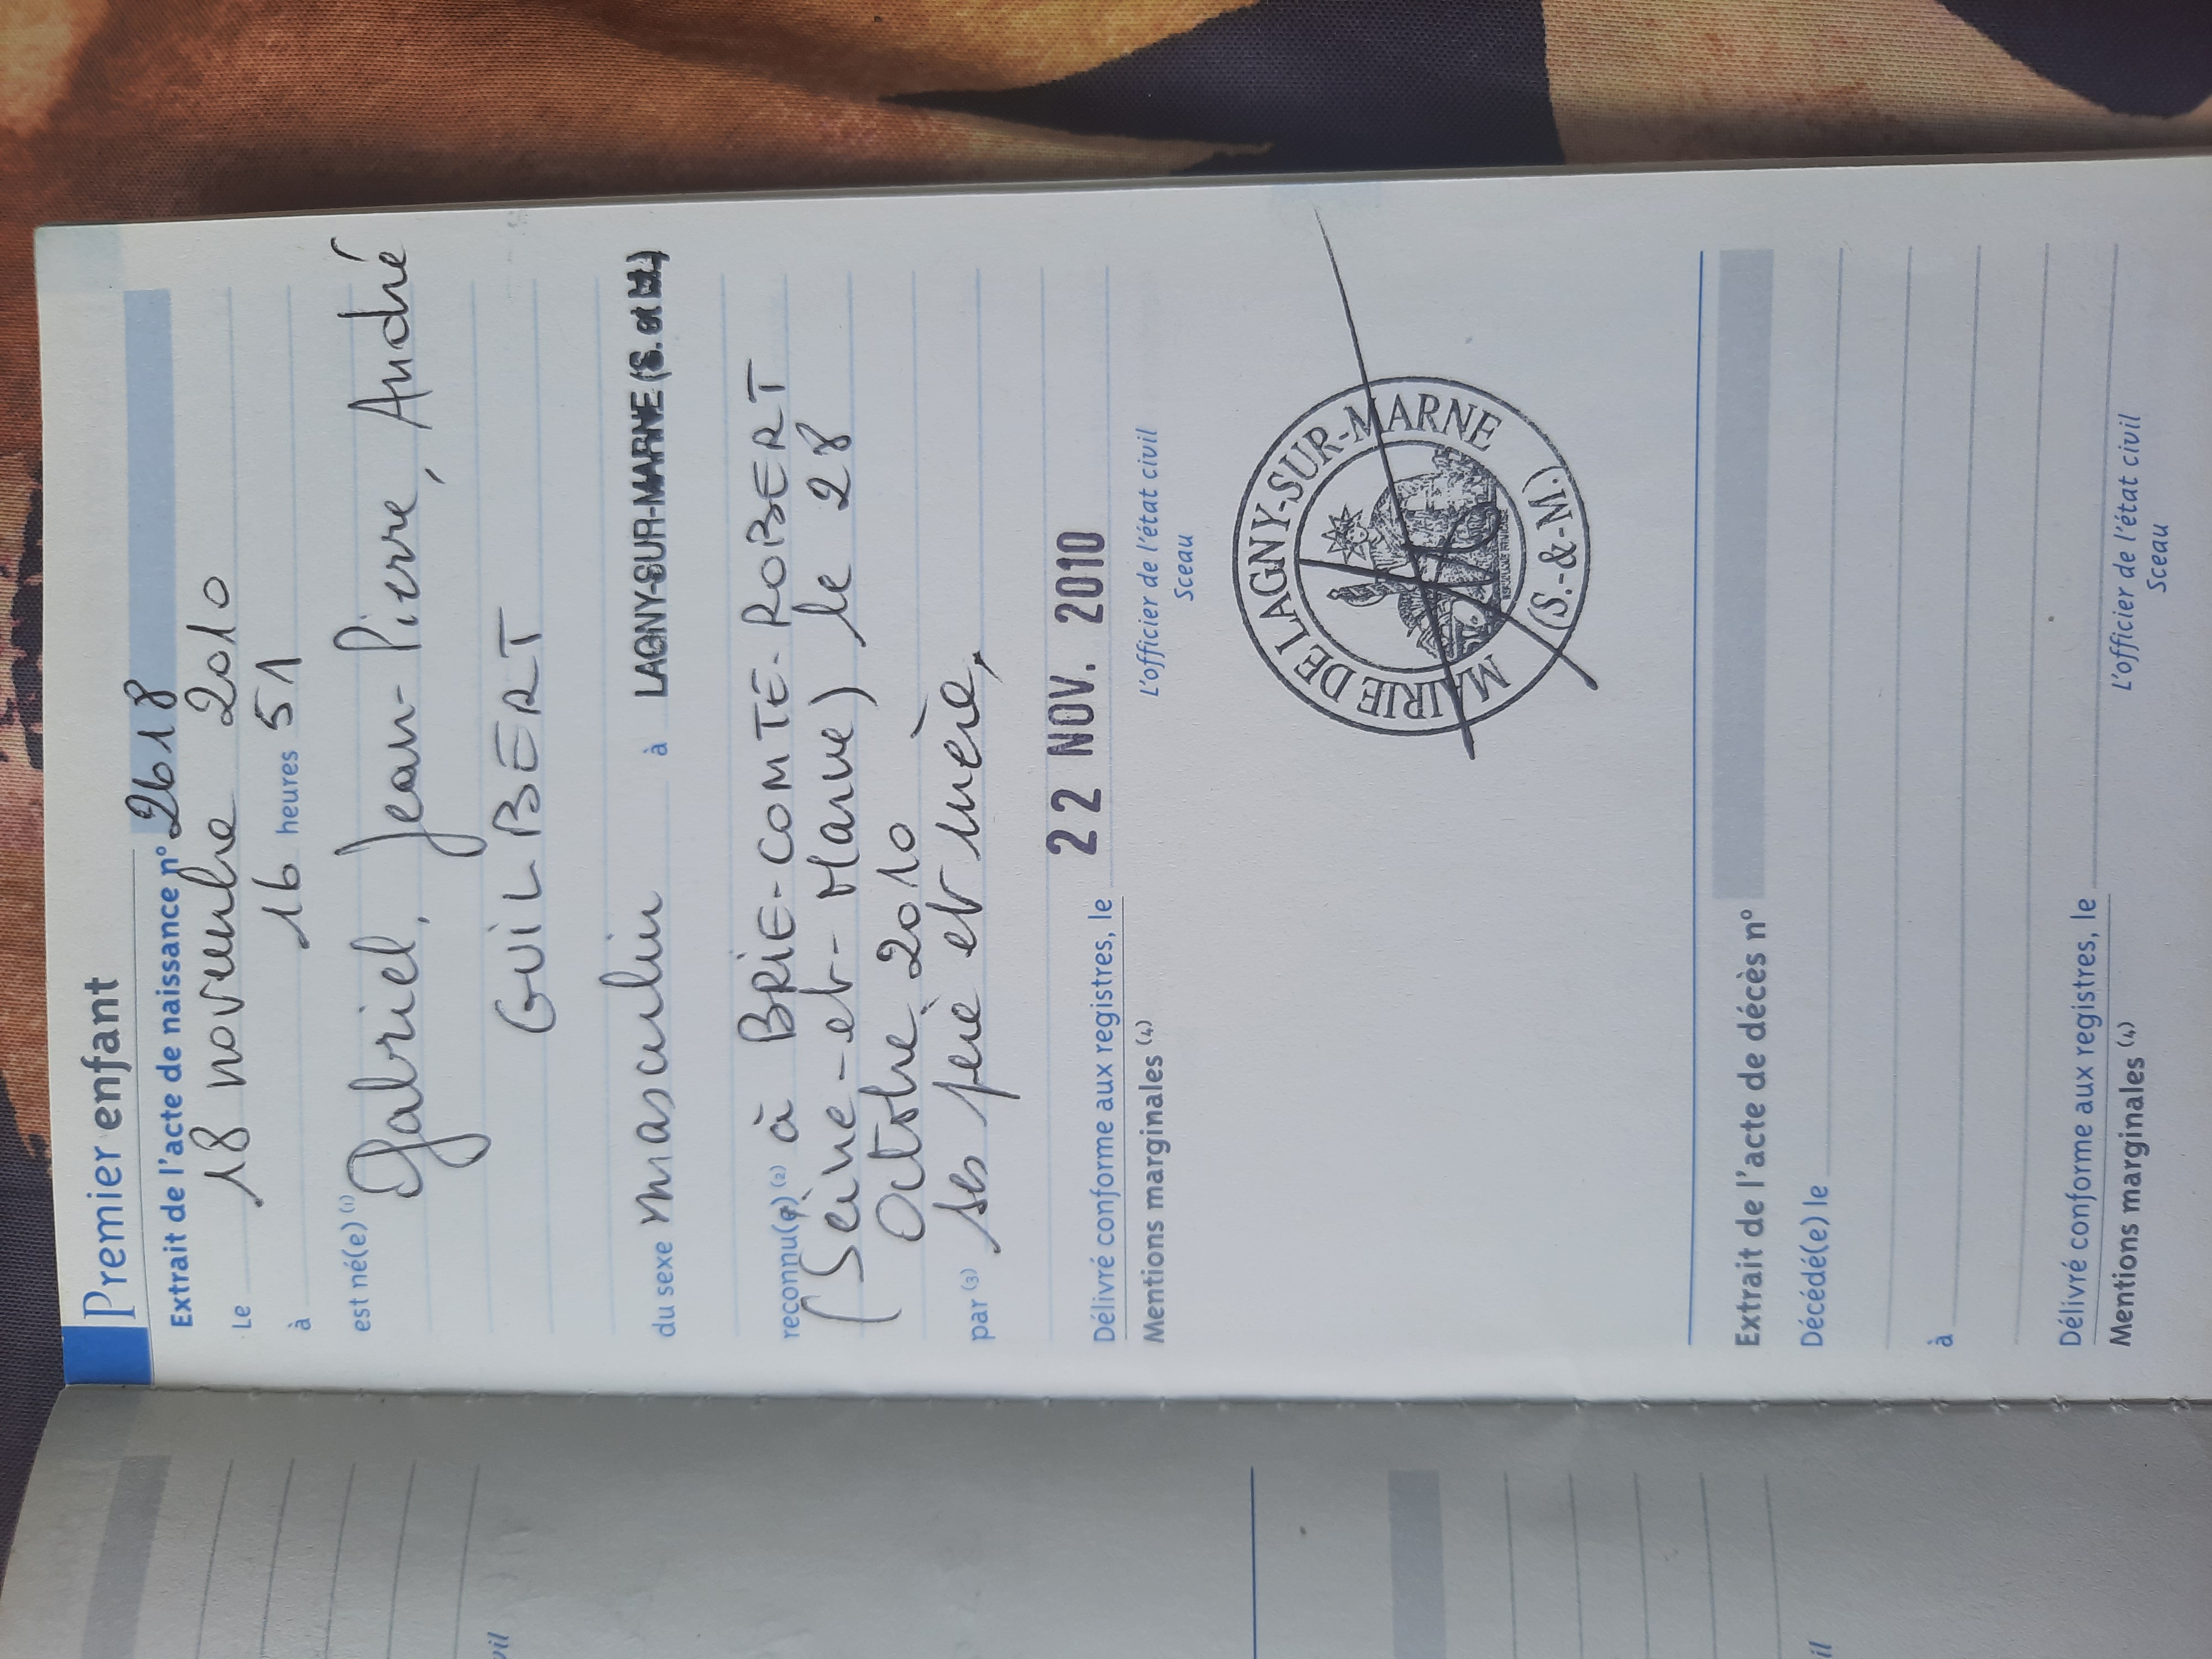 Premier enfant
Extrait de l'acte de naissance n° 2618
Le 18 novembre 2010
à 16 heures 51
est né(e) (1) Gabriel, Jean-Pierre, André
GUILBERT
du sexe masculin à LAGNY-SUR-MARNE (S. et M.)
reconnu(e) (2) à BRIE-COMTE-ROBERT
(Seine-et-Marne) le 28
Octobre 2010
par (3) ses père et mère,
Délivré conforme aux registres, le 22 NOV. 2010
Mentions marginales (4) L'officier de l'état civil
Sceau
MAIRIE DE LAGNY-SUR-MARNE
(S.-&-M.)
Extrait de l'acte de décès n°
Décédé(e) le
à
Délivré conforme aux registres, le
Mentions marginales (4) L'officier de l'état civil
Sceau